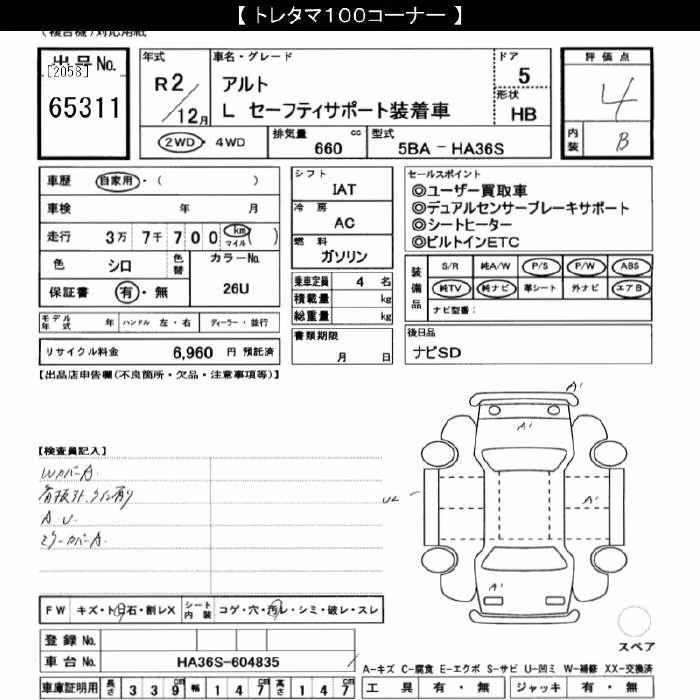 【 トレタマ100コーナー 】
(複合機)対応用紙
出品No.
[2058]
65311
年式
R2/12月
車名・グレード
アルト
L セーフティサポート装着車
ドア
5
形状
HB
評価点
4
内装
B
2WD・4WD
排気量 cc
660
型式
5BA-HA36S
車歴 自家用・( )
車検 年 月
走行 3万7千700 km マイル ( )
色 シロ 色替
カラーNo.
26U
保証書 有・無
シフト
IAT
冷房
AC
燃料
ガソリン
乗車定員 4 名
積載量 kg
総重量 kg
セールスポイント
◎ユーザー買取車
◎デュアルセンサーブレーキサポート
◎シートヒーター
◎ビルトインETC
装備品
S/R 純A/W P/S P/W ABS
純TV 純ナビ 革シート 外ナビ エアB
ナビ型番:
モデル年式 年 ハンドル 左・右 ディーラー・並行
リサイクル料金 6,960 円 預託済
書類期限
月 日
後日品
ナビSD
【出品店申告欄(不良箇所・欠品・注意事項等)】
【検査員記入】
WカバーA
A U
ミラーカバーA
A'
A'
U2
A'
A'
スペア
FW キズ・ト石・割レX
シート内装 コゲ・穴・汚レ・シミ・破レ・スレ
登録No.
車台No. HA36S-604835
車庫証明用 長さ 339cm 幅 147cm 高さ 147cm
A-キズ C-腐食 E-エクボ S-サビ U-凹ミ W-補修 XX-交換済
工具 有・無 ジャッキ 有・無